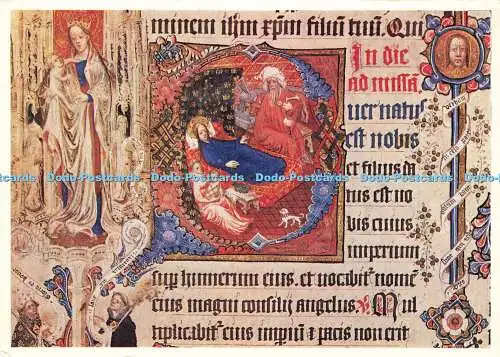 minem ihm xpm filiū tuū. Qui
In die
ad missā
uer natus
est nobis
et filius da
tus est no
bis cuius
imperium
sup humerum eius. et uocibit nomē
eius magni consilij angelus Mul
tiplicabit eius impiū & pacis non erit
Dodo-Postcards Dodo-Postcards Dodo-Postcards Dodo-Postcards